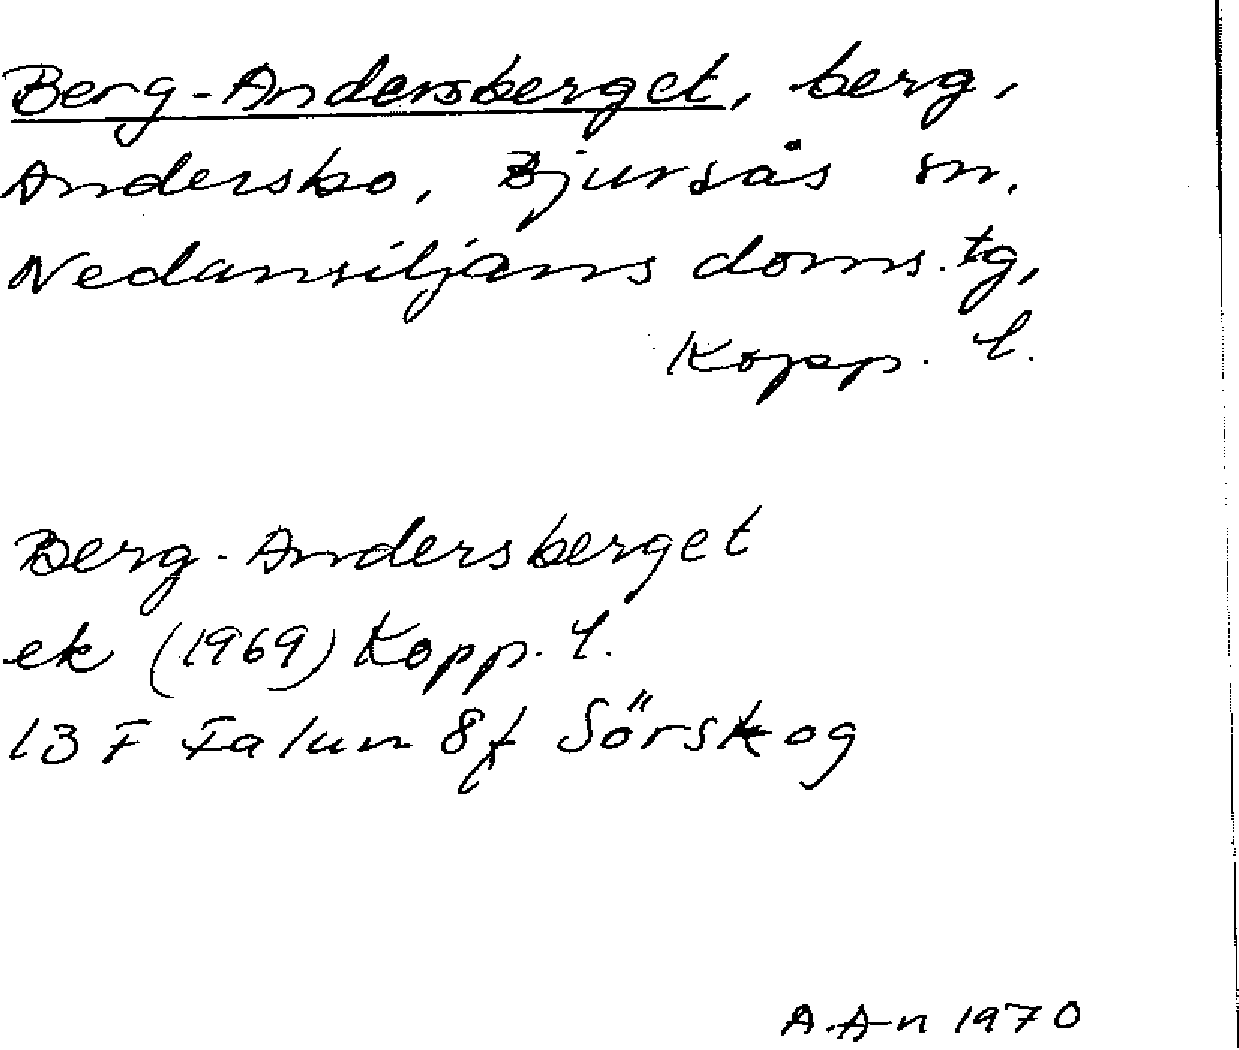 Berg-Andersberget, berg,
Andersbo, Bjursås sn.
Nedansiljans doms.tg,
Kopp. l.
Berg-Andersberget
ek (1969) Kopp. l.
13 F Falun 8f Sörskog
A.A-n 1970